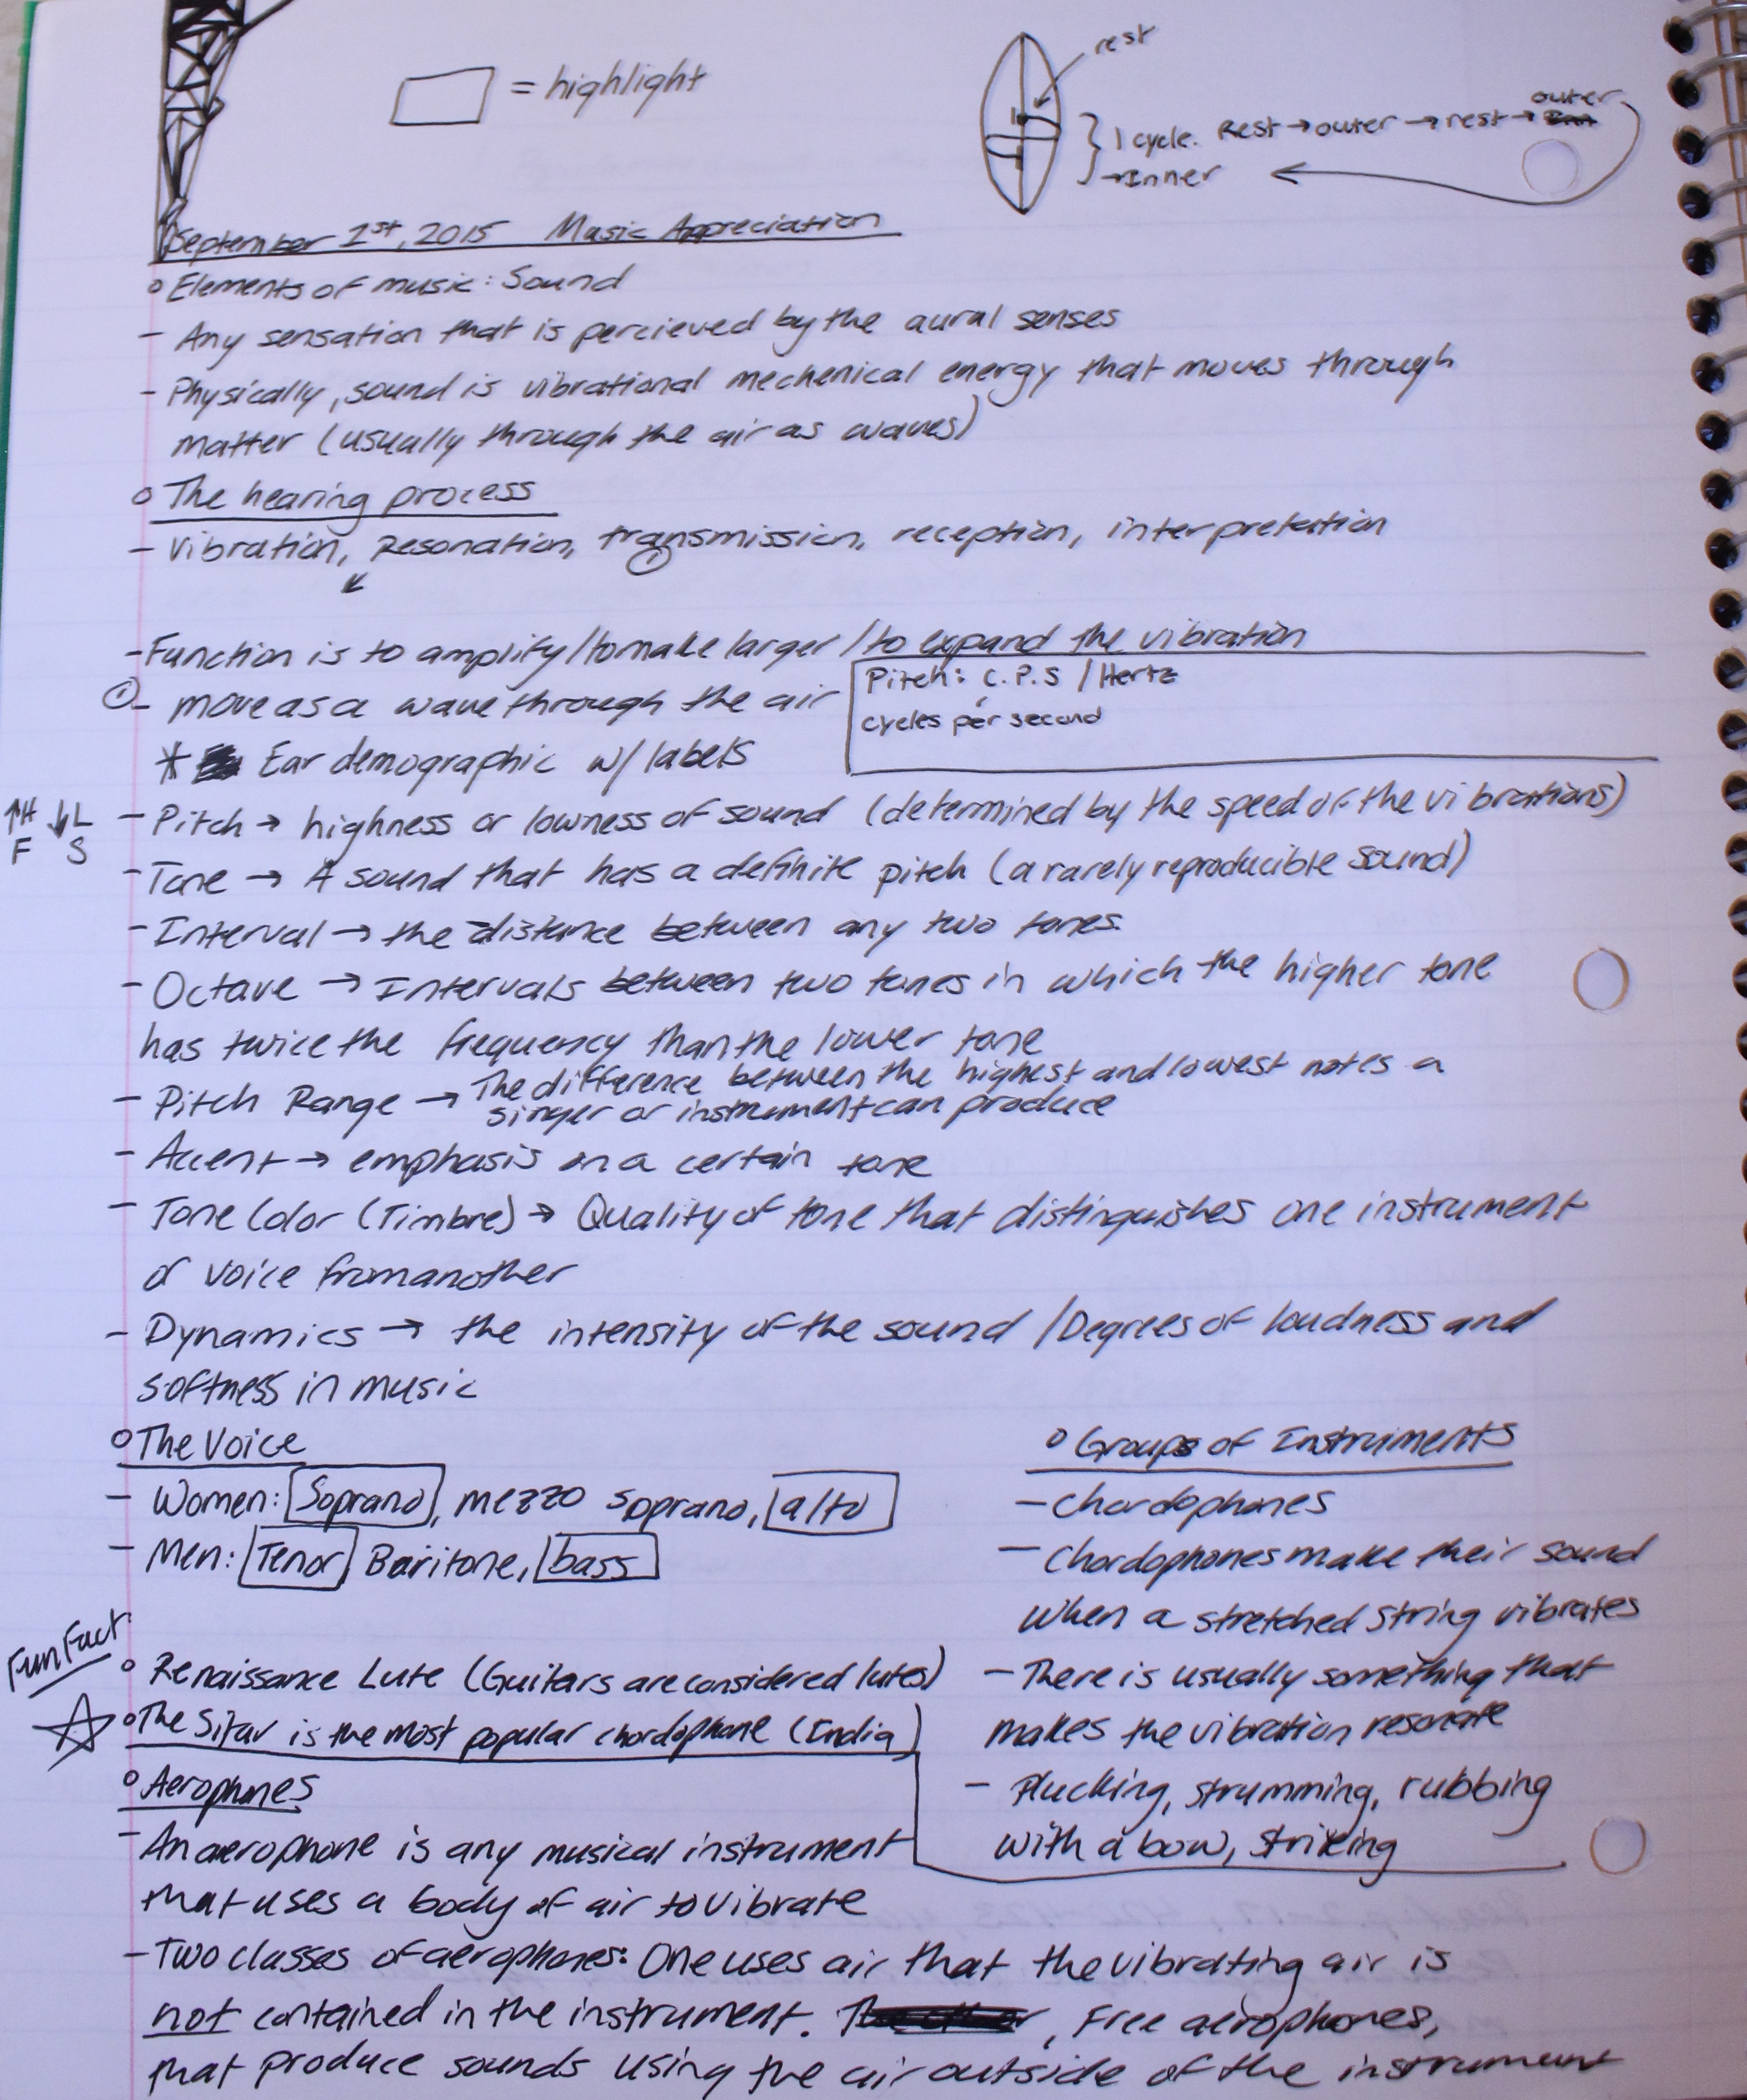 = highlight
rest
outer
1 cycle. Rest → outer → rest →
→ Inner
September 1st, 2015 Music Appreciation
Elements of music: Sound
- Any sensation that is percieved by the aural senses
- Physically, sound is vibrational mechenical energy that moves through
matter (usually through the air as waves)
The hearing process
- Vibration, Resonation, transmission, reception, interpretation
①
- Function is to amplify/to make larger/to expand the vibration
① - move as a wave through the air
Pitch: C.P.S / Hertz
cycles per second
* Ear demographic w/ labels
↑H ↓L
F S
- Pitch → highness or lowness of sound (determined by the speed of the vibrations)
- Tone → A sound that has a definite pitch (a rarely reproducible sound)
- Interval → the distance between any two tones.
- Octave → Intervals between two tones in which the higher tone
has twice the frequency than the lower tone
- Pitch Range → The difference between the highest and lowest notes a
singer or instrument can produce
- Accent → emphasis on a certain tone
- Tone Color (Timbre) → Quality of tone that distinguishes one instrument
or voice from another
- Dynamics → the intensity of the sound / Degrees of loudness and
softness in music
The Voice
- Women: Soprano, mezzo soprano, alto
- Men: Tenor Baritone, bass
Fun Fact
Renaissance Lute (Guitars are considered lutes)
The Sitar is the most popular chordophone (India)
Groups of Instruments
- Chordophones
- Chordophones make their sound
when a stretched string vibrates
- There is usually something that
makes the vibration resonate
- Plucking, strumming, rubbing
with a bow, striking
Aerophones
- An aerophone is any musical instrument
that uses a body of air to vibrate
- Two classes of aerophones: One uses air that the vibrating air is
not contained in the instrument. , Free aerophones,
that produce sounds using the air outside of the instrument